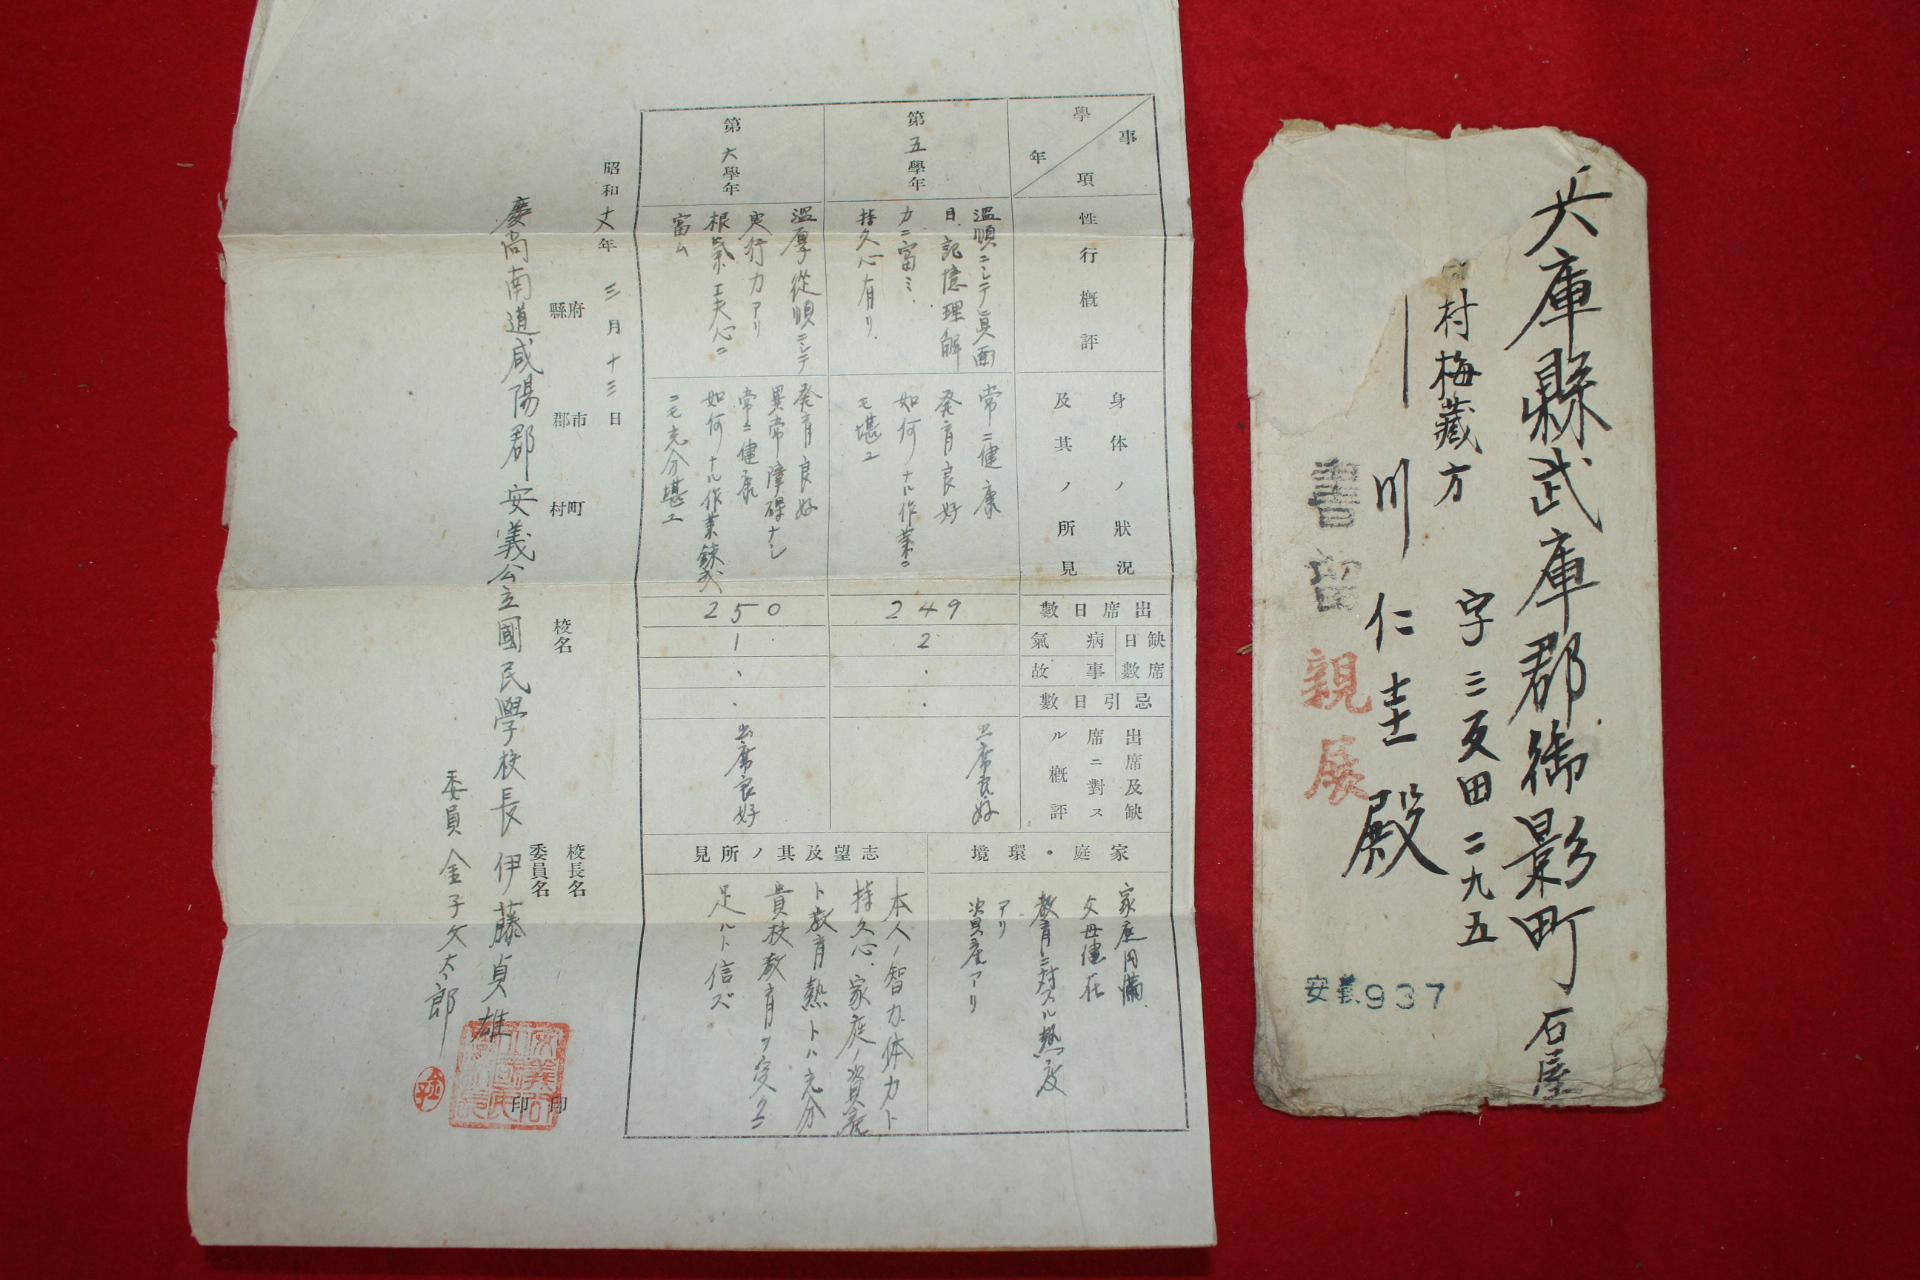 學年
事項
性行概評
身体ノ狀況
及其ノ所見
出席日數
缺席日數
病氣
事故
忌引日數
出席及缺
席ニ對ス
ル概評
家庭・環境
志望及其ノ所見
第五學年
溫順ニシテ眞面
目、記憶理解
力ニ富ミ、
持久心有リ、
常ニ健康
発育良好
如何ナル作業ニ
モ堪エ
249
2
出席良好
第六學年
溫厚從順ニシテ
実行力アリ
根氣工夫心ニ
富ム
発育良好
異常障碍ナシ
常ニ健康
如何ナル作業
ニモ充分堪エ
250
1
出席良好
家庭円満、
父母健在
教育ニ対スル熱度
アリ
資産アリ
本人ノ智力体力ト
持久心、家庭ノ資産
ト教育熱トハ充分
貴校教育ヲ受クニ
足ルト信ズ
昭和 年 三月十三日
府縣
市郡
町村
校名
校長名
委員名
印
印
慶尚南道咸陽郡安義公立國民學校長 伊藤貞雄
委員 金子文太郎
兵庫縣武庫郡御影町石屋
字三反田二九五
村梅藏方
川仁圭殿
書留
親展
安義937